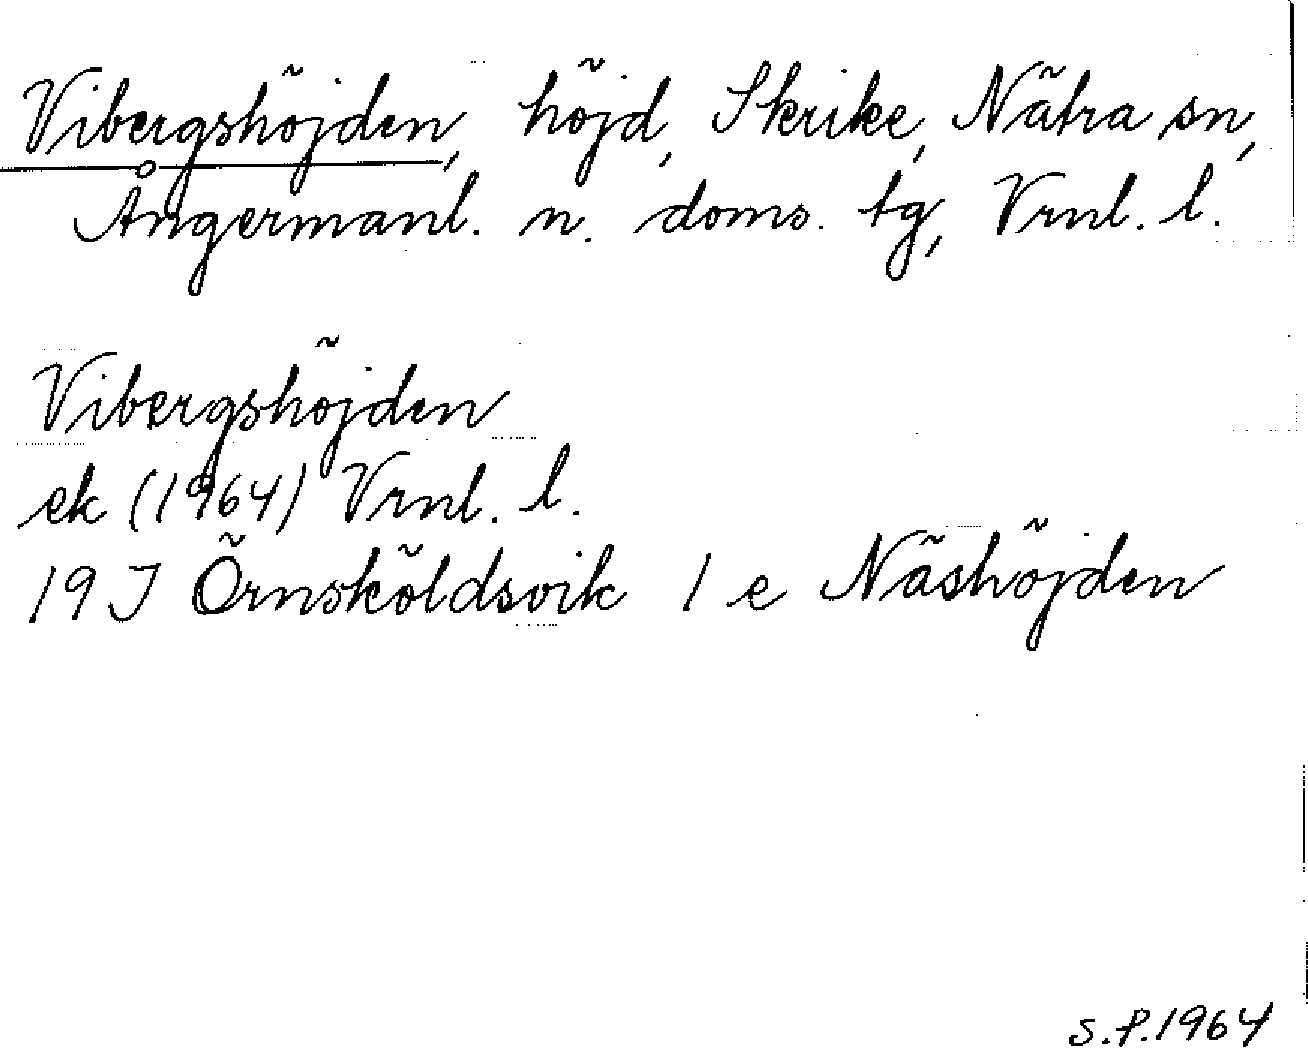 Vibergshöjden, höjd, Skrike, Nätra sn,
Ångermanl. n. doms. tg, Vrnl. l.
Vibergshöjden
ek (1964) Vrnl. l.
19 J Örnsköldsvik 1 e Näshöjden
S.P.1964